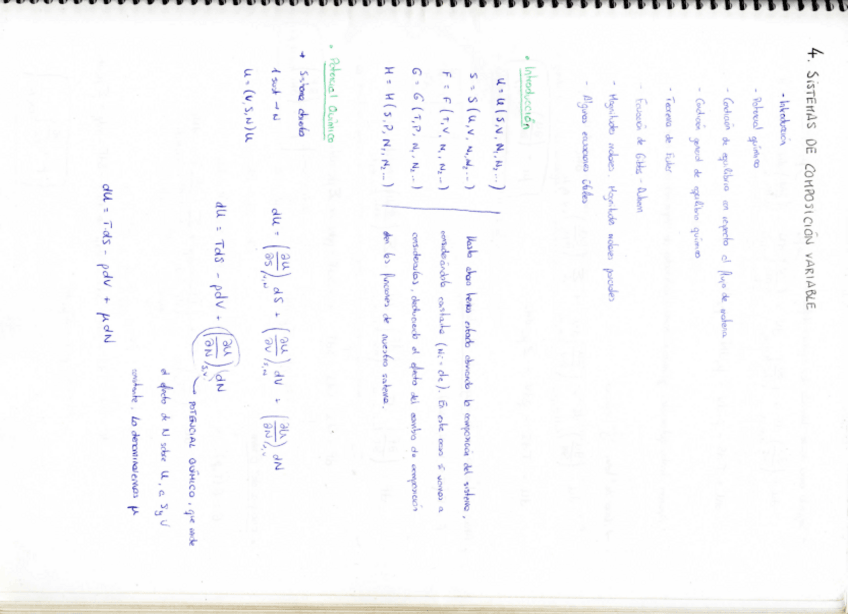 4. SISTEMAS DE COMPOSICIÓN VARIABLE
- Introducción
- Potencial químico
- Condición de equilibrio con respecto al flujo de materia
- Condición general de equilibrio químico
- Teorema de Euler
- Ecuación de Gibbs - Duhem
- Magnitudes molares. Magnitudes molares parciales
- Algunas relaciones útiles
• Introducción
U = U(S, V, N₁, N₂, ...)
S = S(U, V, N₁, N₂, ...)
F = F(T, V, N₁, N₂, ...)
G = G(T, P, N₁, N₂, ...)
H = H(S, P, N₁, N₂, ...)
Hasta ahora hemos estado obviando la composición del sistema,
considerándola constante (Ni = cte). En este caso sí vamos a
considerarlas, deduciendo el efecto del cambio de composición
en las funciones de nuestro sistema.
• Potencial Químico
→ Sistema abierto
1 sust → N
U = (V, S, N) U
dU = (∂U/∂S)V,N dS + (∂U/∂V)S,N dV + (∂U/∂N)S,V dN
dU = TdS - pdV + (∂U/∂N)S,V dN
→ POTENCIAL QUÍMICO, que mide
el efecto de N sobre U, a S y V
constante. Lo denominaremos μ
dU = TdS - pdV + μdN